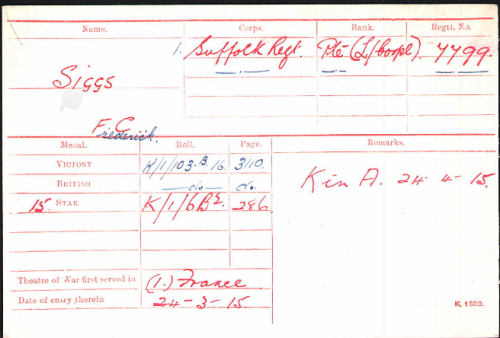 Name. Corps. Rank. Regtl. No.
1. Suffolk Regt. Pte (L/Corpl). 7799.
SIGGS
F C
Frederick.
Medal. Roll. Page. Remarks.
VICTORY K/1/103.B.16 310.
BRITISH -do- do.
15 STAR K/1/6B2. 286.
K in A. 24-4-15.
Theatre of War first served in (1.) France
Date of entry therein 24-3-15
K. 1380.